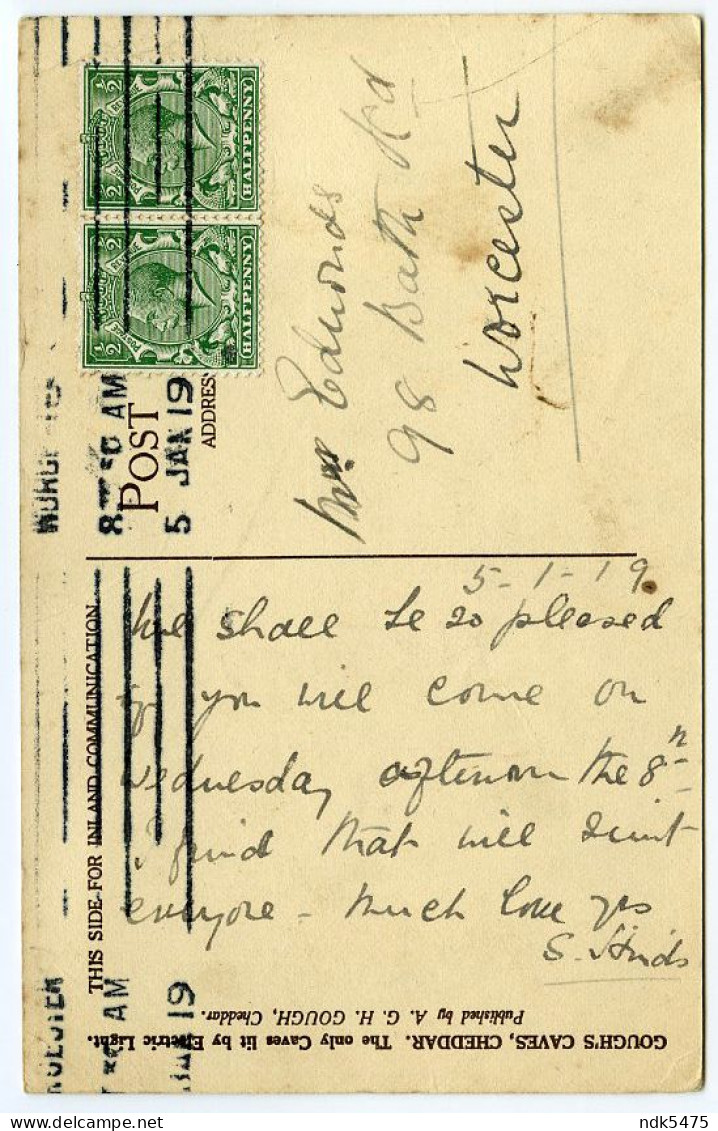 WORCESTER
8 AM
5 JAN 19
POSTAGE REVENUE
½ ½
HALFPENNY
POSTAGE REVENUE
½ ½
HALFPENNY
POST
ADDRES
Edwards
98 Bath Rd
Worcester
THIS SIDE FOR INLAND COMMUNICATION
5-1-19.
We shall be so pleased
if you will come on
Wednesday afternoon the 8th
I find that will suit
everyone - Much love yrs
S. Hinds
GOUGH'S CAVES, CHEDDAR. The only Caves lit by Electric Light.
Published by A. G. H. GOUGH, Cheddar.
RCESTER
AM
JAN 19
ndk5475